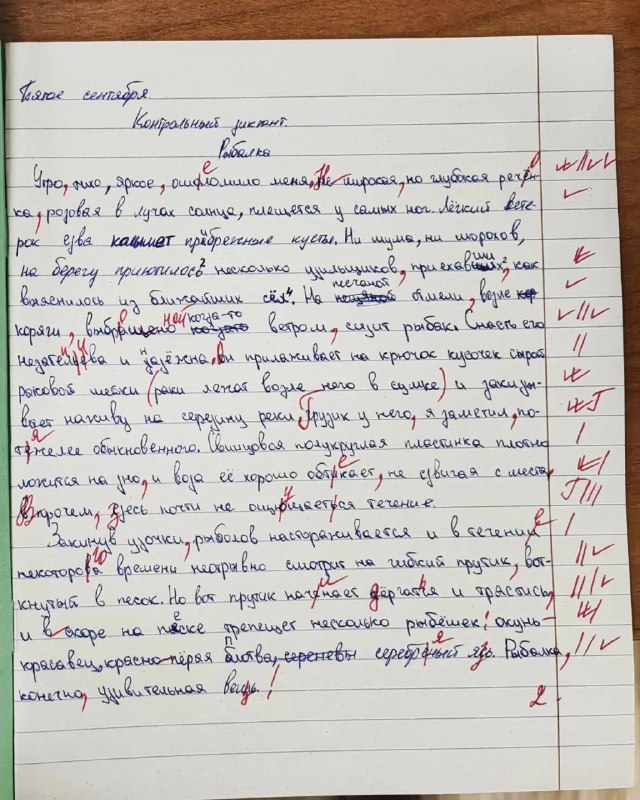 Пятое сентября.
Контрольный диктант.
Рыбалка
Утро, тихо, яркое, ошеломило меня, Не широкая, но глубокая речён-
ка, розовая в лучах солнца, плещется у самых ног. Лёгкий вете-
рок едва колышет прибрежные кусты. Ни шума, ни шорохов,
на берегу приютилось несколько удильщиков, приехавших, как
выяснилось из ближайших сёл. На песчаной отмели, возле
коряги, выброшено когда-то ветром, сидит рыбак. Снасть его
незателева и надёжна, он прилаживает на крючок кусочек сырой
раковой шейки (раки лежат возле него в сумке) и закиды-
вает наживу на середину реки. Грузик у него, я заметил, по-
тяжелее обыкновенного. Свинцовая полукруглая пластинка плотно
ложится на дно, и вода её хорошо обтекает, не сдвигая с места,
Впрочем, здесь почти не ощущается течение.
Закинув удочки, рыболов настораживается и в течении
некоторого времени неотрывно смотрит на гибкий прутик, вот-
кнутый в песок. Но вот прутик начинает дёргатся и трястись,
и в скоре на песке трепещет несколько рыбёшек: окунь-
красавец, красно-пёрая плотва, серебряный язь. Рыбалка,
конечно, удивительная вещь!
2